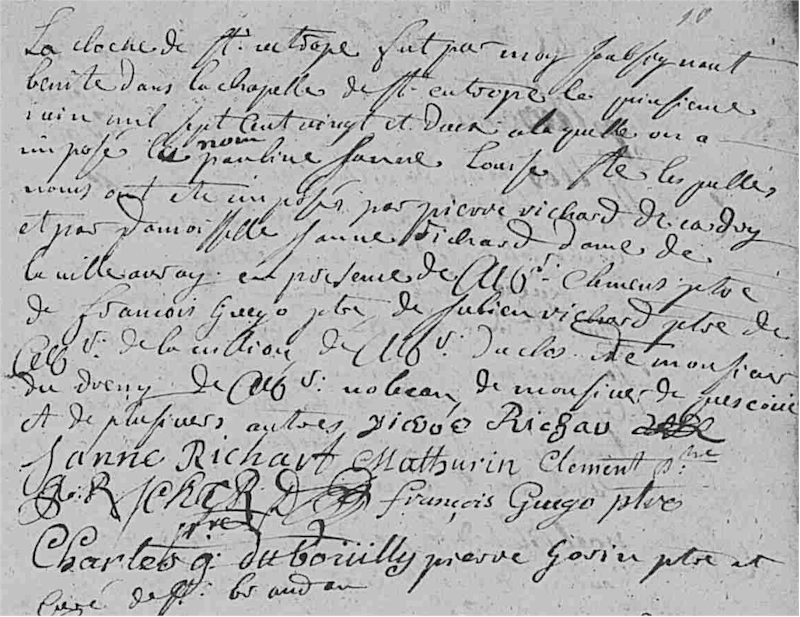 18
La cloche de St. utrope fut par moy soubsignant
benite dans la chapelle de St. entrope le
iuin mil sept cent vingt et deux a laquelle on a
imposé les nom pauline Janne Louise Ste lesquelles
noms ont ete imposés par pierre richard de
et par Damoiselle Janne Richard dame de
la ville auray en presence de Clement ptre
de francois Guego ptre de Julien richard ptre de
de la de duclos de monsieur
du de nobeau de monsieur de
et de plusieurs autres pierre Richar
Janne Richart Mathurin Clement p.tre
françois Guego ptre
ptre
Charles g. du bouilly pierre Gorin ptre et
curé de St. brandan